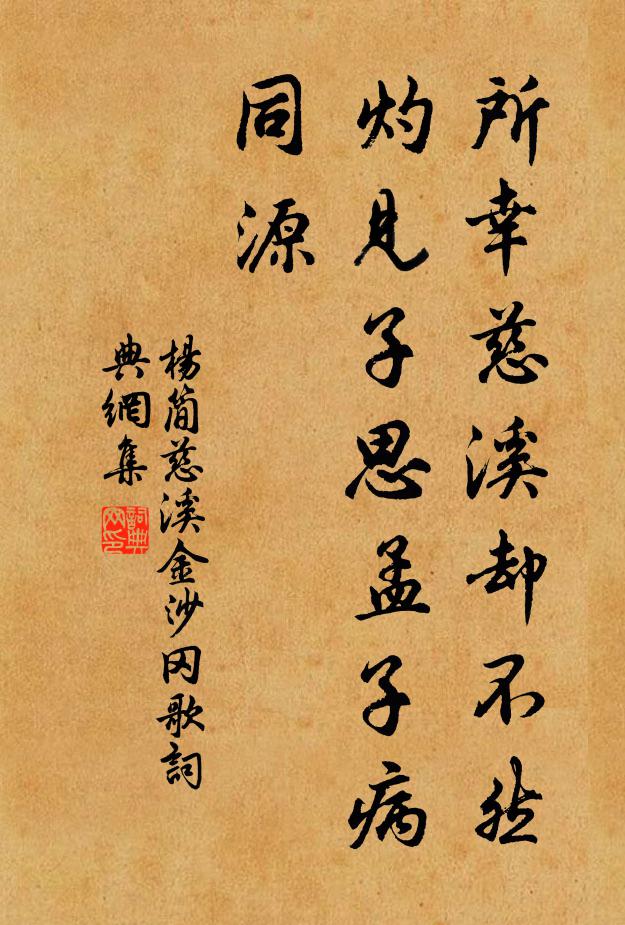 所幸慈溪却不然
灼见子思孟子病
同源
楊简慈溪金沙冈歌詞
典網集
詞典網印